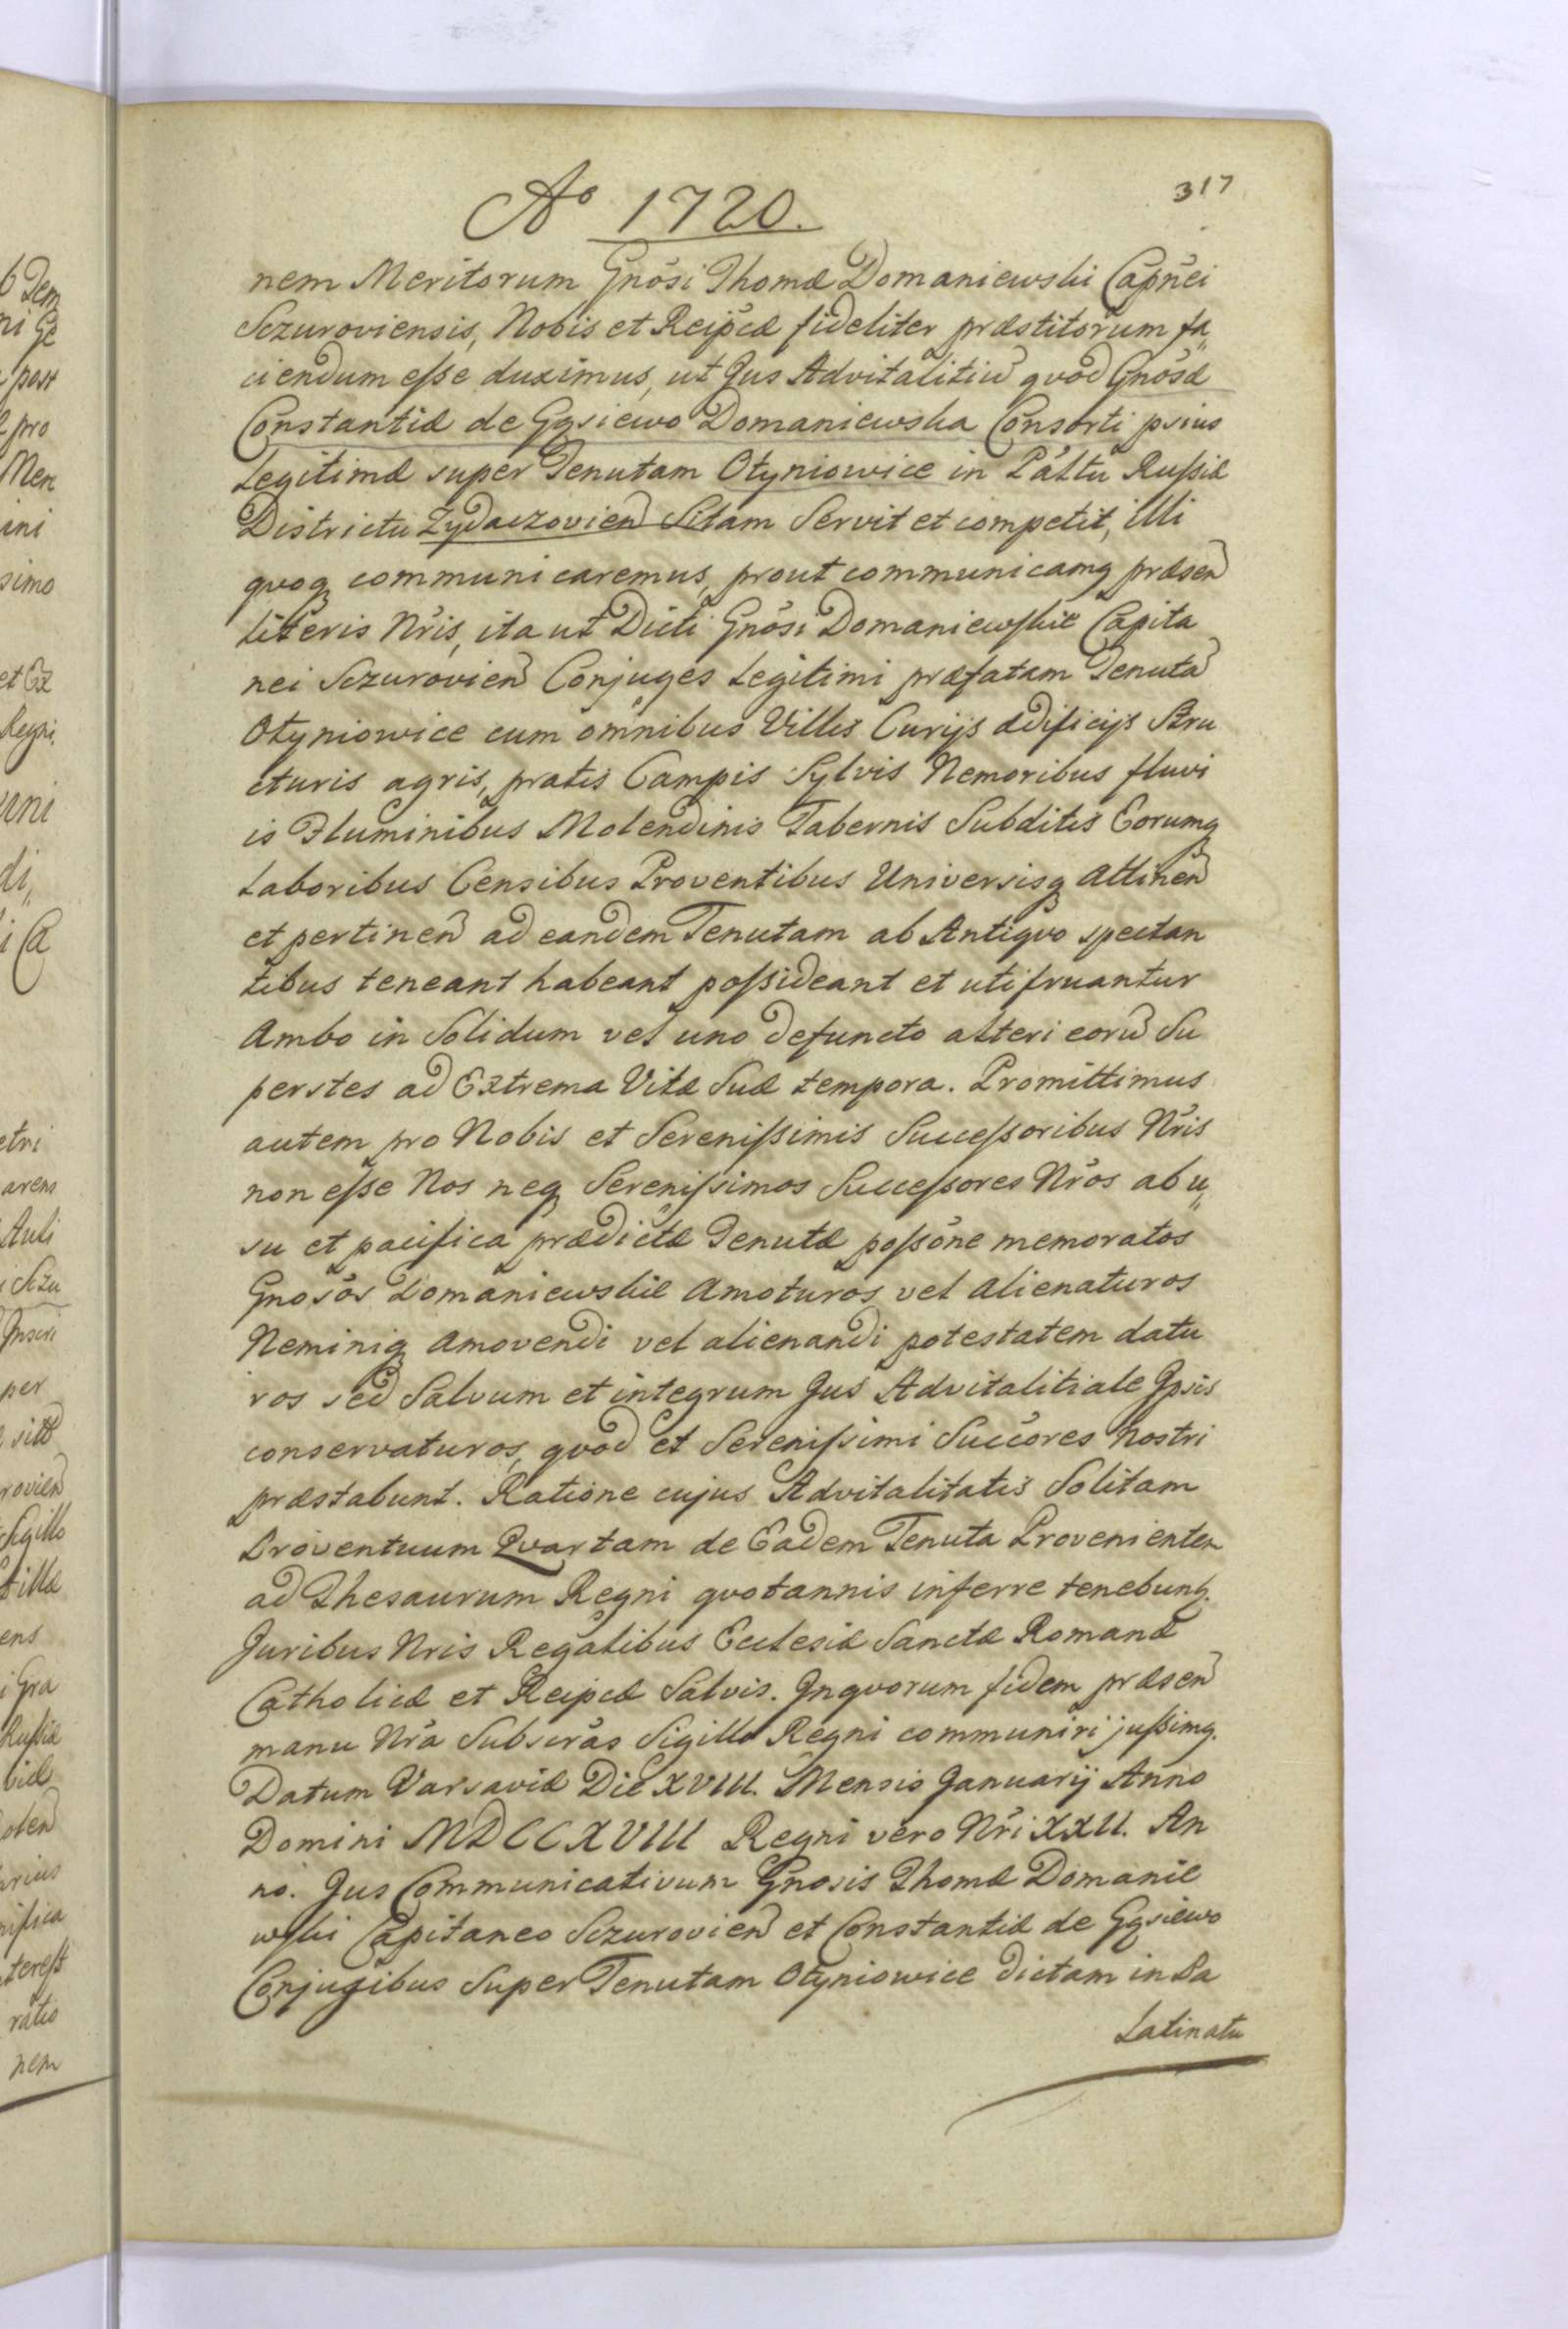 317
Ao 1720.
nem Meritorum Gnosi Thomæ Domaniewski Capnei
Sczuroviensis, Nobis et Reipcæ fideliter præstitorum fa„
ciendum eſse duximus, ut Jus Advitalitiu qvod Gnosæ
Constantiæ de Gąsiewo Domaniewska Consorti psius
Legitimæ super Tenutam Otyniowice in Paltu Ruſsiæ
Districtu Zydaczovien Sitam Servit et competit, illi
qvoq communicaremus, prout communicamq præsen
literis Nris, ita ut Dicti Gnosi Domaniewſkie Capita
nei Sczurovien Conjuges Legitimi præfatam Tenuta
Otyniowice cum omnibus Villis Curijs ædificijs Stru
cturis agris, pratis Campis Sylvis Nemoribus fluvi
is Fluminibus Molendinis Tabernis Subditis Eorumq
Laboribus Censibus Proventibus Universisq Attinen
et pertinen ad eandem Tenutam ab Antiqvo spectan
tibus teneant habeant poſsideant et utifruantur
Ambo in Solidum vel uno defuncto alteri eoru Su
perstes ad Extrema Vitæ Suæ tempora. Promittimus
autem pro Nobis et Sereniſsimis Succeſsoribus Nris
non eſse Nos neq Sereniſsimos Succeſsores Nros ab u„
su et pacifica prædictæ Tenutæ poſsone memoratos
Gnosos Domaniewskie Amoturos vel Alienaturos
Neminiq Amovendi vel alienandi potestatem datu
ros sed Salvum et integrum Jus Advitalitiale Ipsis
conservaturos, qvod et Sereniſsimi Succores Nostri
præstabunt. Ratione cujus Advitalitatis Solitam
Proventuum Qvartam de Eadem Tenuta Provenienten
ad Thesaurum Regni qvotannis inferre tenebunt.
Juribus Nris Regalibus Ecclesiæ Sanctæ Romanæ
Catholicæ et Reipcæ Salvis. Inqvorum fidem præsen
manu Nra Subscras Sigillo Regni communiri juſsimq.
Datum Varsaviæ Die XVIII. Mensis Januarij Anno
Domini MDCCXVIII Regni vero Nri XXII. An
no. Jus Communicativum Gnosis Thomæ Domanie
wſki Capitaneo Sczurovien et Constantiæ de Gąsiewo
Conjugibus Super Tenutam Otyniowice dictam in Pa
Latinatu